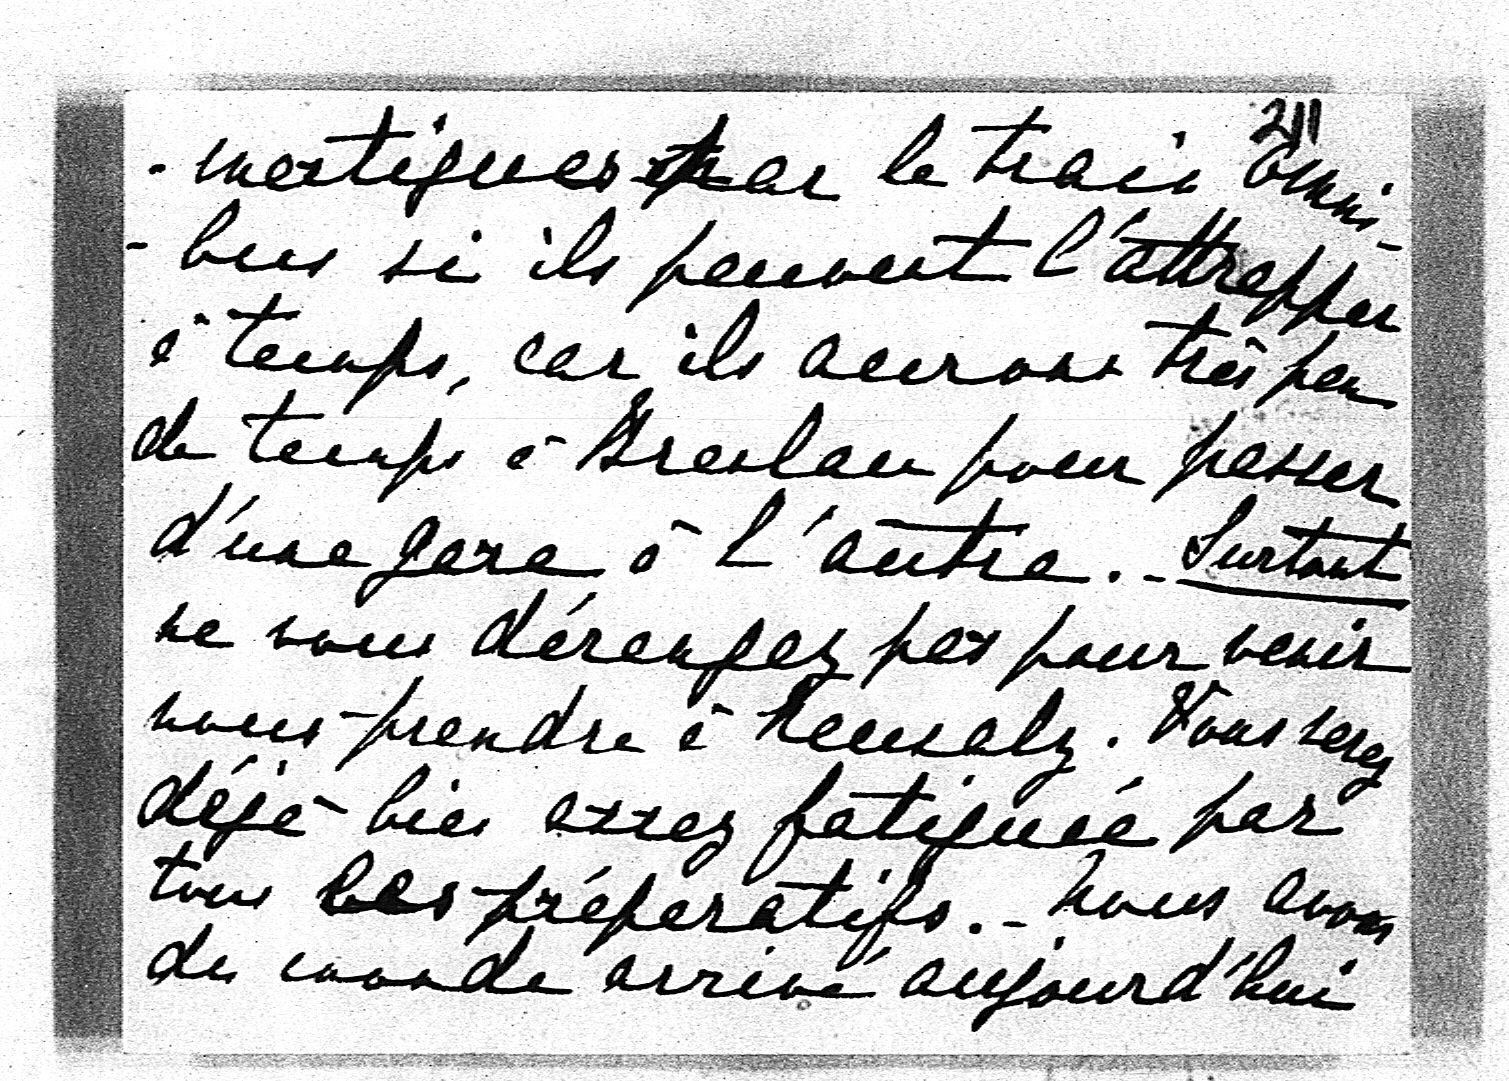 211
-mestiques par le train omni-
-bus si ils peuvent l'attrapper
à temps, car ils aurons très peu
de temps à Breslau pour passer
d'une gare à l'autre. - Surtout
ne vous dérangez pas pour venir
nous prendre à Neusalz. Vous serez
déjà bien assez fatiguée par
tous les préparatifs. - Nous avons
du monde arrivé aujourd'hui